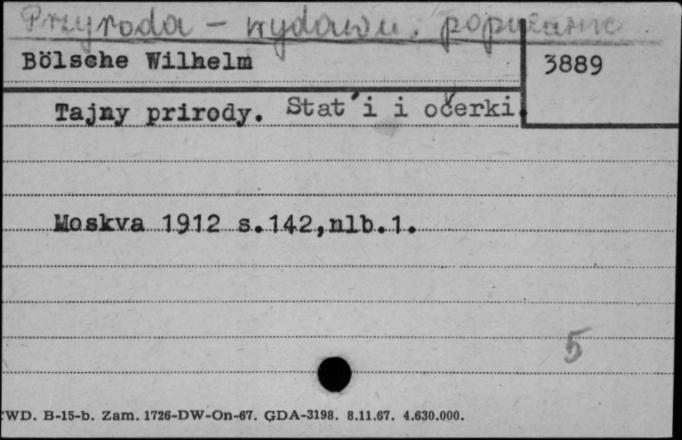 Przyroda – wydawn. popularne
Bölsche Wilhelm
3889
Tajny prirody. Stat'i i očerki
Moskva 1912 s.142,nlb.1.
5
WD. B-15-b. Zam. 1726-DW-On-67. GDA-3198. 8.11.67. 4.630.000.